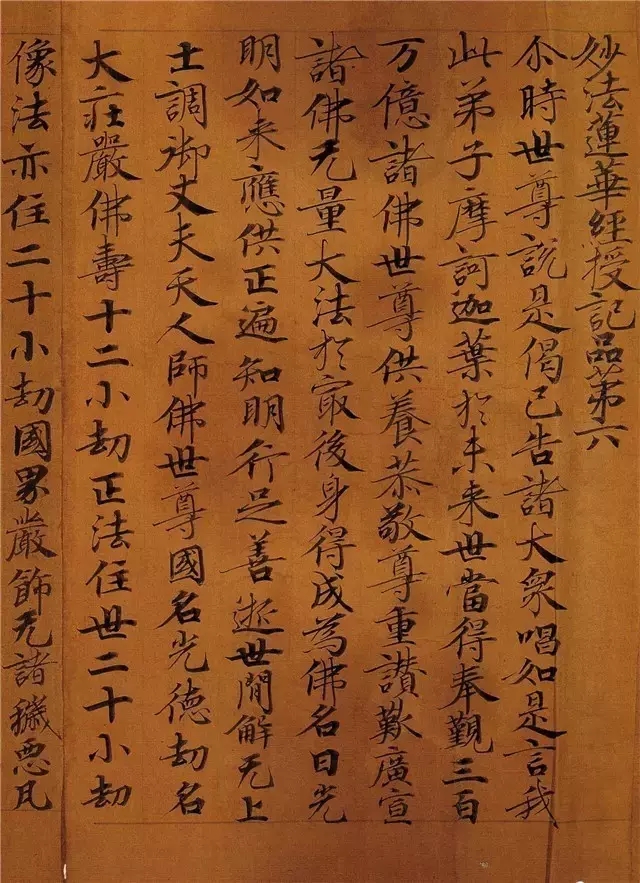 妙法蓮華經授記品第六
尒時世尊說是偈已告諸大衆唱如是言我
此弟子摩訶迦葉於未来世當得奉覲三百
万億諸佛世尊供養恭敬尊重讃歎廣宣
諸佛无量大法於㝡後身得成為佛名曰光
明如来應供正遍知明行足善逝世閒解无上
士調御丈夫天人師佛世尊國名光德劫名
大莊嚴佛壽十二小劫正法住世二十小劫
像法亦住二十小劫國界嚴飾无諸穢惡瓦